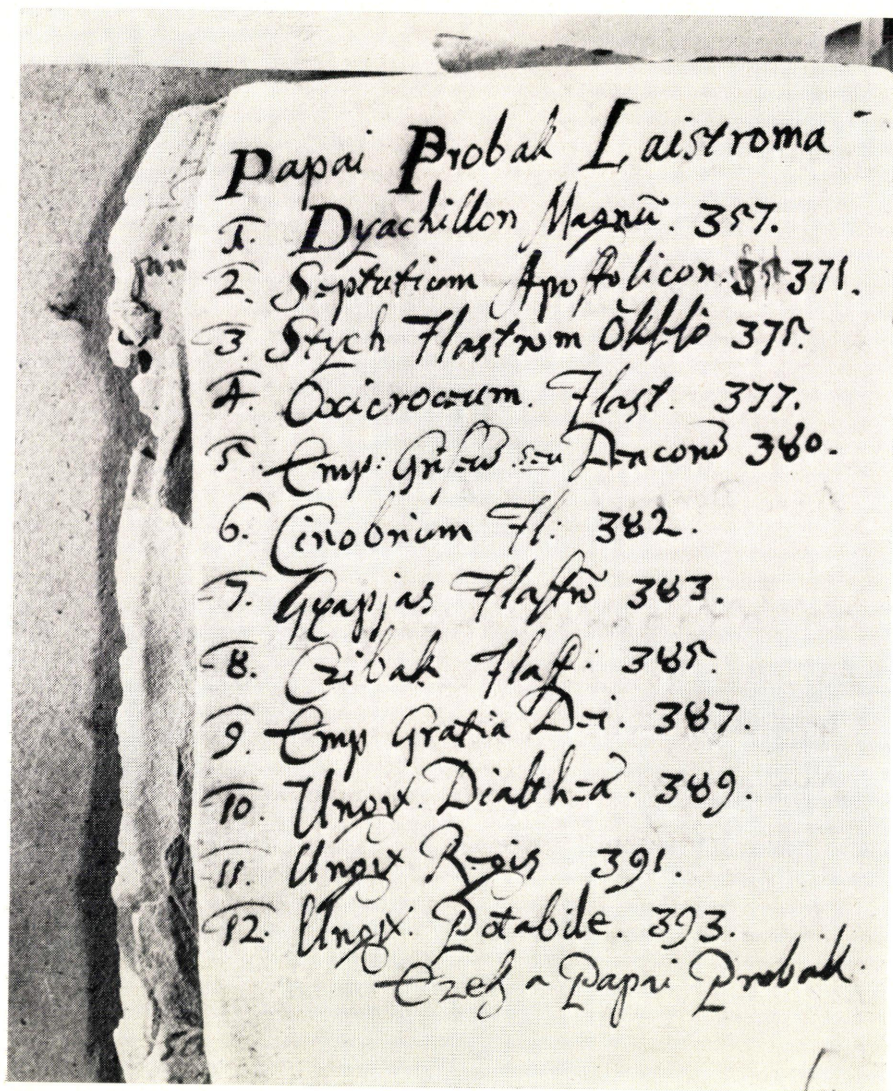 Papai Probak Laistroma
1. Dyachillon Magnū. 357.
2. Septuticum Apostolicon. 371.
3. Stych Flastrum 375.
4. Oxicroceum. Flast. 377.
5. Emp: seu 380.
6. Cinobrium Fl: 382.
7. Gyapjas Flastrū 383.
8. Czibak Flast: 385.
9. Emp Gratia Dei. 387.
10. Ungv. Dialthea. 389.
11. Ungv Regis 391.
12. Ungv. Potabile. 393.
Ezek a Papai Probak.